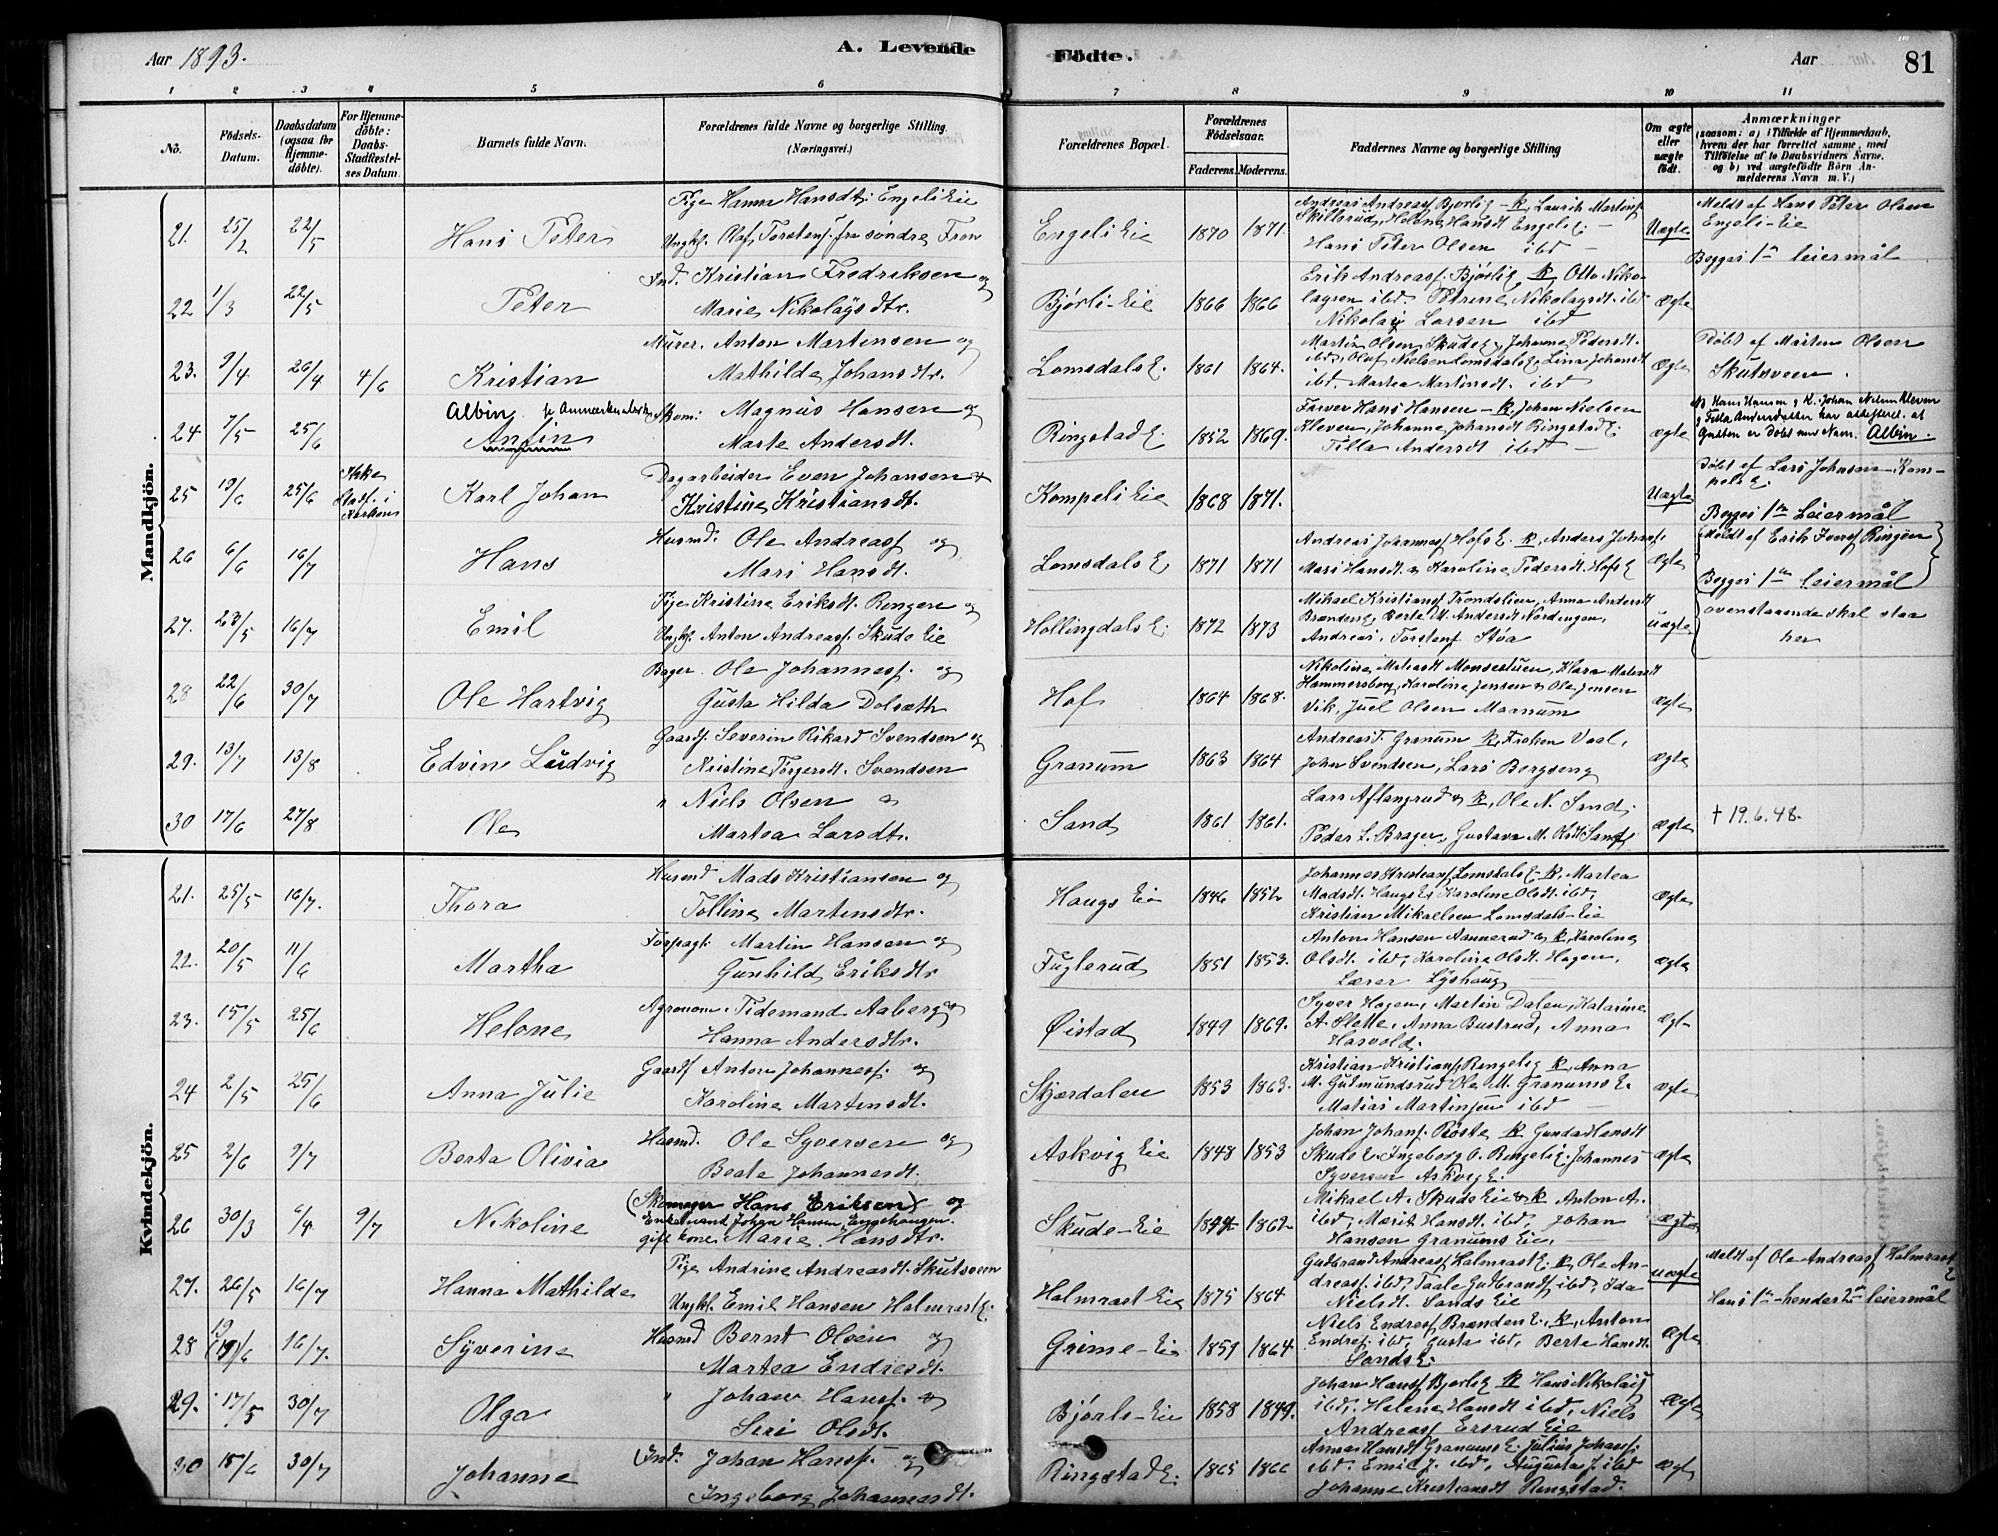 Aar 1893.
A. Levende
Födte.
Aar
81
1 2 3 4 5 6 7 8 9 10 11
No.
Födsels-Datum.
Daabsdatum (ogsaa for Hjemmedöbte).
For Hjemmedöbte: Daabs-Stadfæstelses Datum.
Barnets fulde Navn.
Forældrenes fulde Navne og borgerlige Stilling. (Næringsvei.)
Forældrenes Bopæl.
Forældrenes Födselsaar.
Faderens. Moderens.
Faddernes Navne og borgerlige Stilling
Om ægte eller uægte födt.
Anmærkninger
(saasom: a) i Tilfælde af Hjemmedaab, hvem der har forrettet samme, med Tilföielse af to Daabsvidners Navne, og b) ved uægtefödte Börn Anmelderens Navn m. V.)
Mandkjön.
21. 25/2 22/5 Hans Peter
Pige Hanna Hansdtr. Engeli Eie
Ungk. Olaf Torstens. fra söndre Fron
Engeli Eie 1870 1871.
Andreas Andreas. Bjorlig - K, Laurits Martins.
Skillerud, Helene Hansdt Engeli E. -
Hans Peter Olsen ibd
Uægte
Meldt af Hans Peter Olsen
Engeli-Eie
Begges 1ste leiermål
22 1/3 22/5 Peter
Ind. Kristian Fredriksen og
Marie Nikolaysdtr.
Bjørli-Eie 1866 1866
Erik Andreas. Bjørli E K, Otto Niko-
laysen ibd, Petrine Nikolaysdt. ibd
Nikolay Larsen ibd
Ægte
23. 9/4 26/4 4/6 Kristian
Murer. Anton Martinsen og
Mathilde Johansdtr.
Lomsdals E. 1861 1864.
Martin Olsen Skuds E, Johanne Pedersdt.
ibd, Olaf Nielsen Lomsdals E, Lina Johansdt
ibd, Martea Martinsdt. ibd
Ægte
Döbt af Martin Olsen
Skutsveen.
24 7/5 25/6 Albin. se Anmærkn.
Anfin
Skom: Magnus Hansen og
Marte Andersdt.
Ringstad E. 1852 1869.
Farver Hans Hansen - K, Johan Nielsen
Kleven, Johanne Johansdt Ringstad E.
Tilla Andersdt ibd -
ægte
NB Hans Hansen og K. Johan Nilsen Kleven
og Tilla Andersdatter har attesteret at
Gutten er döbt med Navn. Albin.
25 19/6 25/6 Ikke Stadf. i Kirken
Karl Johan
Dagarbeider Even Johansen &
Kristine Kristiansdt.
Kompeli Eie 1868 1871.
Uægte
Döbt af Lars Johnsen Kom-
peli E.
Begges 1ste Leiermål
26 6/6 16/7 Hans
Husmd. Ole Andreass og
Mari Hansdt.
Lomsdals E 1871 1871
Andreas Johanness Hofs E. K, Anders Johans.
Mari Hansdt. & Karoline Pedersdt. Hofs E
Ægte
(Meldt af Erik Ivers. Ringen
Begges 1ste leiermål
27. 23/5 16/7 Emil
Pige Kristine Eriksdt. Ringen og
Ungk. Anton Andreas. Skuds Eie
Hollingdals E. 1872 1873
Mikael Kristians Trondslien, Anna Andersdt
Brænden, Berte M. Andersdt Nordengen,
Andreas Torstens Støa
uægte
ovenstaaende skal staa
her
28 22/6 30/7 Ole Hartvig
Bager. Ole Johanness. og
Gusta Hilda Dolsæth
Hof 1864 1868.
Nikoline Matiasdt Monsestuen, Klara Matiasdt
Hammersberg, Karoline Jensen & Ole Jensen
Vik, Juel Olsen Maanum
ægte
29. 13/7 13/8 Edvin Ludvig
Gaardf. Severin Rikard Svendsen og
Kristine Torgersdt. Svendsen
Granum 1863 1864
Andreas F. Granum K, Frøken Vaal,
John Svendsen, Lars Bergseng
ægte
30 17/6 27/8 Ole
" Niels Olsen &
Martea Larsdt.
Sand 1861 1861.
Lars Aflangrud & K, Ole N. Sand,
Peder L. Brager, Gustava M. Olsdt Sand
Ægte
† 19.6.48.
Kvindekjön.
21. 25/5 16/7. Thora
Husmd Mads Kristiansen og
Tolline Martinsdtr.
Haugs Ei 1846 1852
Johannes Kristians Lomsdals E - K, Martea
Madsdt. Haugs E, Karoline Olsdt. ibd,
Kristian Mikaelsen Lomsdals-Eie
Ægte
22. 20/5 11/6 Martha
Forpagt. Martin Hansen og
Gunhild Eriksdtr
Fuglerud 1851 1853.
Anton Hansen Aannerud & K, Karoline
Olsdt. ibd, Karoline Olsdt. Hagen,
Lærer Lyshaug
ægte
23. 15/5 25/6 Helene
Agronom. Tidemand Aaberg &
Hanna Andersdtr.
Øistad 1849 1869.
Syver Hagen, Martin Dalen, Katarine
A. Slette, Anna Bustrud, Anna
Hasvold.
Ægt-
24 2/5 25/6 Anna Julie
Gaardf Anton Johanness. og
Karoline Martinsdt.
Skjærdalen 1853 1863.
Kristian Kristians Ringeli E K, Anna
M. Gulmundsrud Ole M. Granums E.
Matias Martinsen ibd -
ægte
25 2/6 9/7 Berta Olivia
Husmd. Ole Syversen og
Beate Johannesdt.
Askvig Eie 1848 1853
Johan Johans. Røste K Gunda Hansdt
Skuds E. Ingeborg O. Ringeli E. Johannes
Syversen Askvig E.
Ægte
26 30/3 6/4 9/7 Nikoline
(Skomager Hans Eriksen) og
Enkemand Johan Hansen Enggehaugen.
gift kone Marie Hansdtr.
Skuds-Eie 1842 1862
Mikael A. Skuds Eie & K Anton A.
ibd, Marit Hansdt. ibd, Johan
Hansen Granums Eie,
uægte
27. 26/5 16/7 Hanna Mathilde
Pige Andrine Andreasdt. Skutsveen
Ungk. Emil Hansen Halmrast E.
Halmrast Eie 1875 1864
Gudbrand Andreas Halmrast E. K, Ole An-
dreass. ibd, Taale Gudbrands ibd, Ida
Nielsdt. Sands Eie
uægte
Meldt af Ole Andreas Halmrast E
Hans 1ste - hendes 2det leiermål
28 19/6 16/7. Syverine
Husmd Bernt Olsen og
Martea Endresdt.
Grime-Ei 1859 1864.
Niels Endres Brænden E. K, Anton
Endres. ibd, Gusta ibd, Berte Hansdt.
Sands E.
Ægte
29. 17/5 30/7 Olga
" Johan Hans. &
Siri Olsdt.
Bjørli-Eie 1858 1849.
Johan Hans Bjørli E K Hans Nikolais
ibd, Helene Hansdt ibd, Niels
Andreas. Ersrud Eie
Ægte
30 18/6 30/7 Johanne
(Ind. Johan Hans. og
Ingeborg Johannesdt.
Ringstad E. 1865 1866
Anna Hansdt Granums E. Julius Johans.
ibd, Emil J. ibd, Augusta J. ibd
Johanne Kristiansdt Ringstad.
Ægt